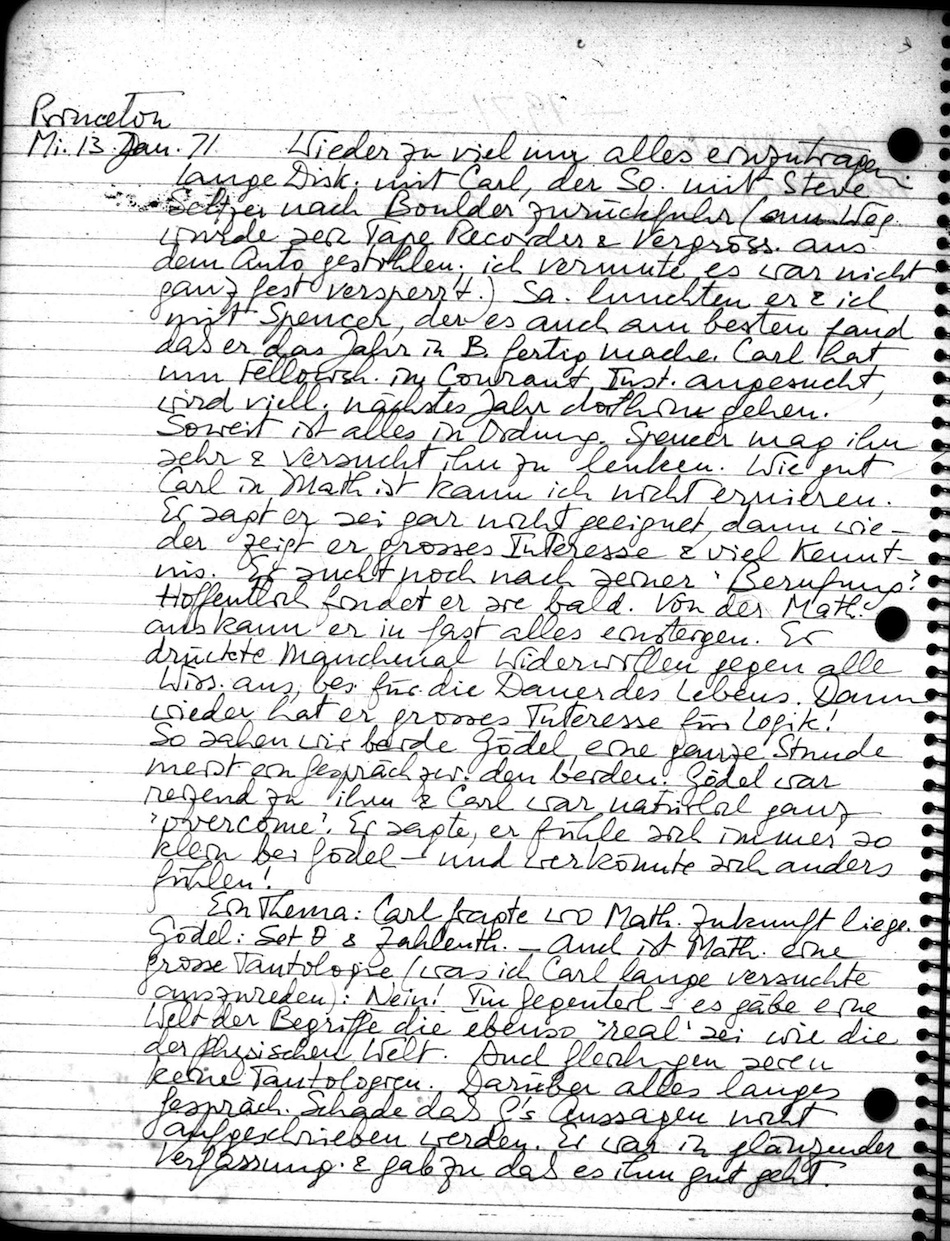 Princeton
Mi. 13. Jan. 71 Wieder zu viel um alles einzutragen.
Lange Disk. mit Carl, der So. mit Steve
nach Boulder zurückfuhr ( Weg
wurde sein Tape Recorder & Vergröss. aus
dem Auto gestohlen; ich vermute es war nicht
ganz fest versperrt.) Sa. lunchten er & ich
mit Spencer, der es auch am besten fand
das er das Jahr in B. fertig mache. Carl hat
um Fellowsh. im Courant Inst. angesucht,
wird viell. nächstes Jahr dorthin gehen.
Soweit ist alles in Ordnung. Spencer mag ihn
sehr & versucht ihn zu lenken. Wie gut
Carl in Math ist kann ich nicht eruieren.
Er sagt er sei gar nicht geeignet, dann wie-
der zeigt er grosses Interesse & viel Kennt-
nis. Er sucht noch nach seiner 'Berufung'.
Hoffentlich findet er sie bald. Von der Math.
aus kann er in fast alles einsteigen. Er
drückte manchmal Widerwillen gegen alle
Wiss. aus, bes. für die Dauer des Lebens. Dann
wieder hat er grosses Interesse für Logik!
So sahen wir beide Gödel, eine ganze Stunde
meist ein Gespräch zw. den beiden. Gödel war
reizend zu ihm & Carl war natürlich ganz
'overcome'. Er sagte, er fühle sich immer so
klein bei Gödel – und wer könnte sich anders
fühlen!
Ein Thema: Carl fragte wo Math. Zukunft liege.
Gödel: Set θ & Zahlenth. – Auch ist Math. eine
grosse Tautologie (was ich Carl lange versuchte
auszureden): Nein! Im Gegenteil – es gäbe eine
Welt der Begriffe die ebenso 'real' sei wie die
der physischen Welt. Auch Gleichgen seien
keine Tautologien. Darüber alles langes
Gespräch. Schade das G's Aussagen nicht
aufgeschrieben werden. Er war in glänzender
Verfassung & gab zu das es ihm gut geht.